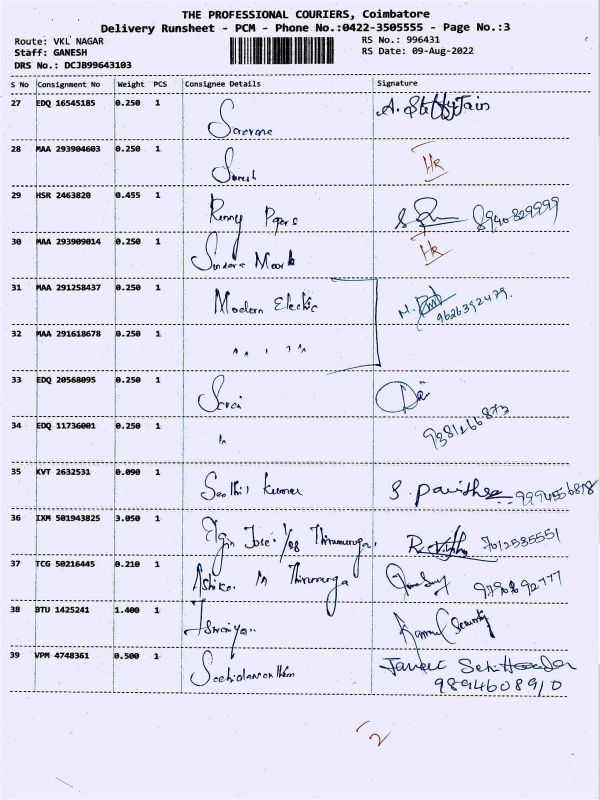 THE PROFESSIONAL COURIERS, Coimbatore
Delivery Runsheet - PCM - Phone No.:0422-3505555 - Page No.:3
Route: VKL NAGAR RS No.: 996431
Staff: GANESH RS Date: 09-Aug-2022
DRS No.: DCJB99643103
S No Consignment No Weight PCS Consignee Details Signature
27 EDQ 16545185 0.250 1 A. Steffy Jain
28 MAA 293904603 0.250 1 Suresh
29 HSR 2463820 0.455 1 Renny Papers 8940829999
30 MAA 293909014 0.250 1 Sundara Mark
31 MAA 291258437 0.250 1 Modern Electric M. 9626392479.
32 MAA 291618678 0.250 1 " " " "
33 EDQ 20568095 0.250 1
34 EDQ 11736001 0.250 1 " 9381266873
35 KVT 2632531 0.090 1 Senthil Kumar S. Pavithra
36 IXM 501943825 3.050 1 Elgin Jose. 7012535551
37 TCG 50216445 0.210 1
38 BTU 1425241 1.400 1 Security
39 VPM 4748361 0.500 1
9894608910
2